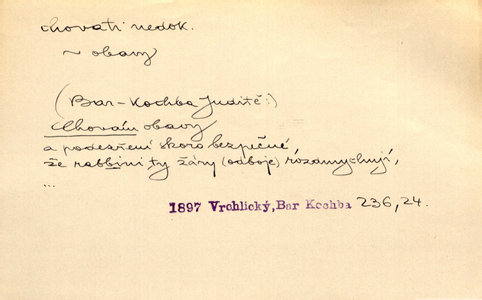 chovati nedok.
~ obavy
(Bar-Kochba Juditě:)
Chovám obavy
a podezření skoro bezpečné,
že rabbini ty žáry (odboje) rozdmychují,
...
1897 Vrchlický, Bar Kochba 236,24.